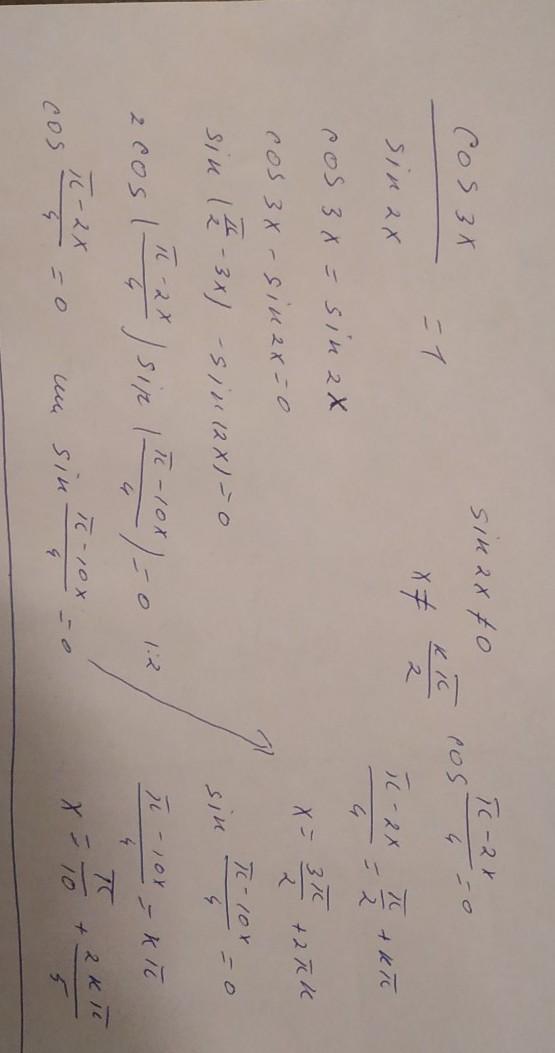 cos 3x / sin 2x = 1
cos 3x = sin 2x
cos 3x - sin 2x = 0
sin (π/2 - 3x) - sin (2x) = 0
2 cos ((π - 2x)/4) sin ((π - 10x)/4) = 0 |:2
cos (π - 2x)/4 = 0 или sin (π - 10x)/4 = 0
sin 2x ≠ 0
x ≠ kπ/2
cos (π - 2x)/4 = 0
(π - 2x)/4 = π/2 + kπ
x = 3π/2 + 2πk
sin (π - 10x)/4 = 0
(π - 10x)/4 = kπ
x = π/10 + 2kπ/5